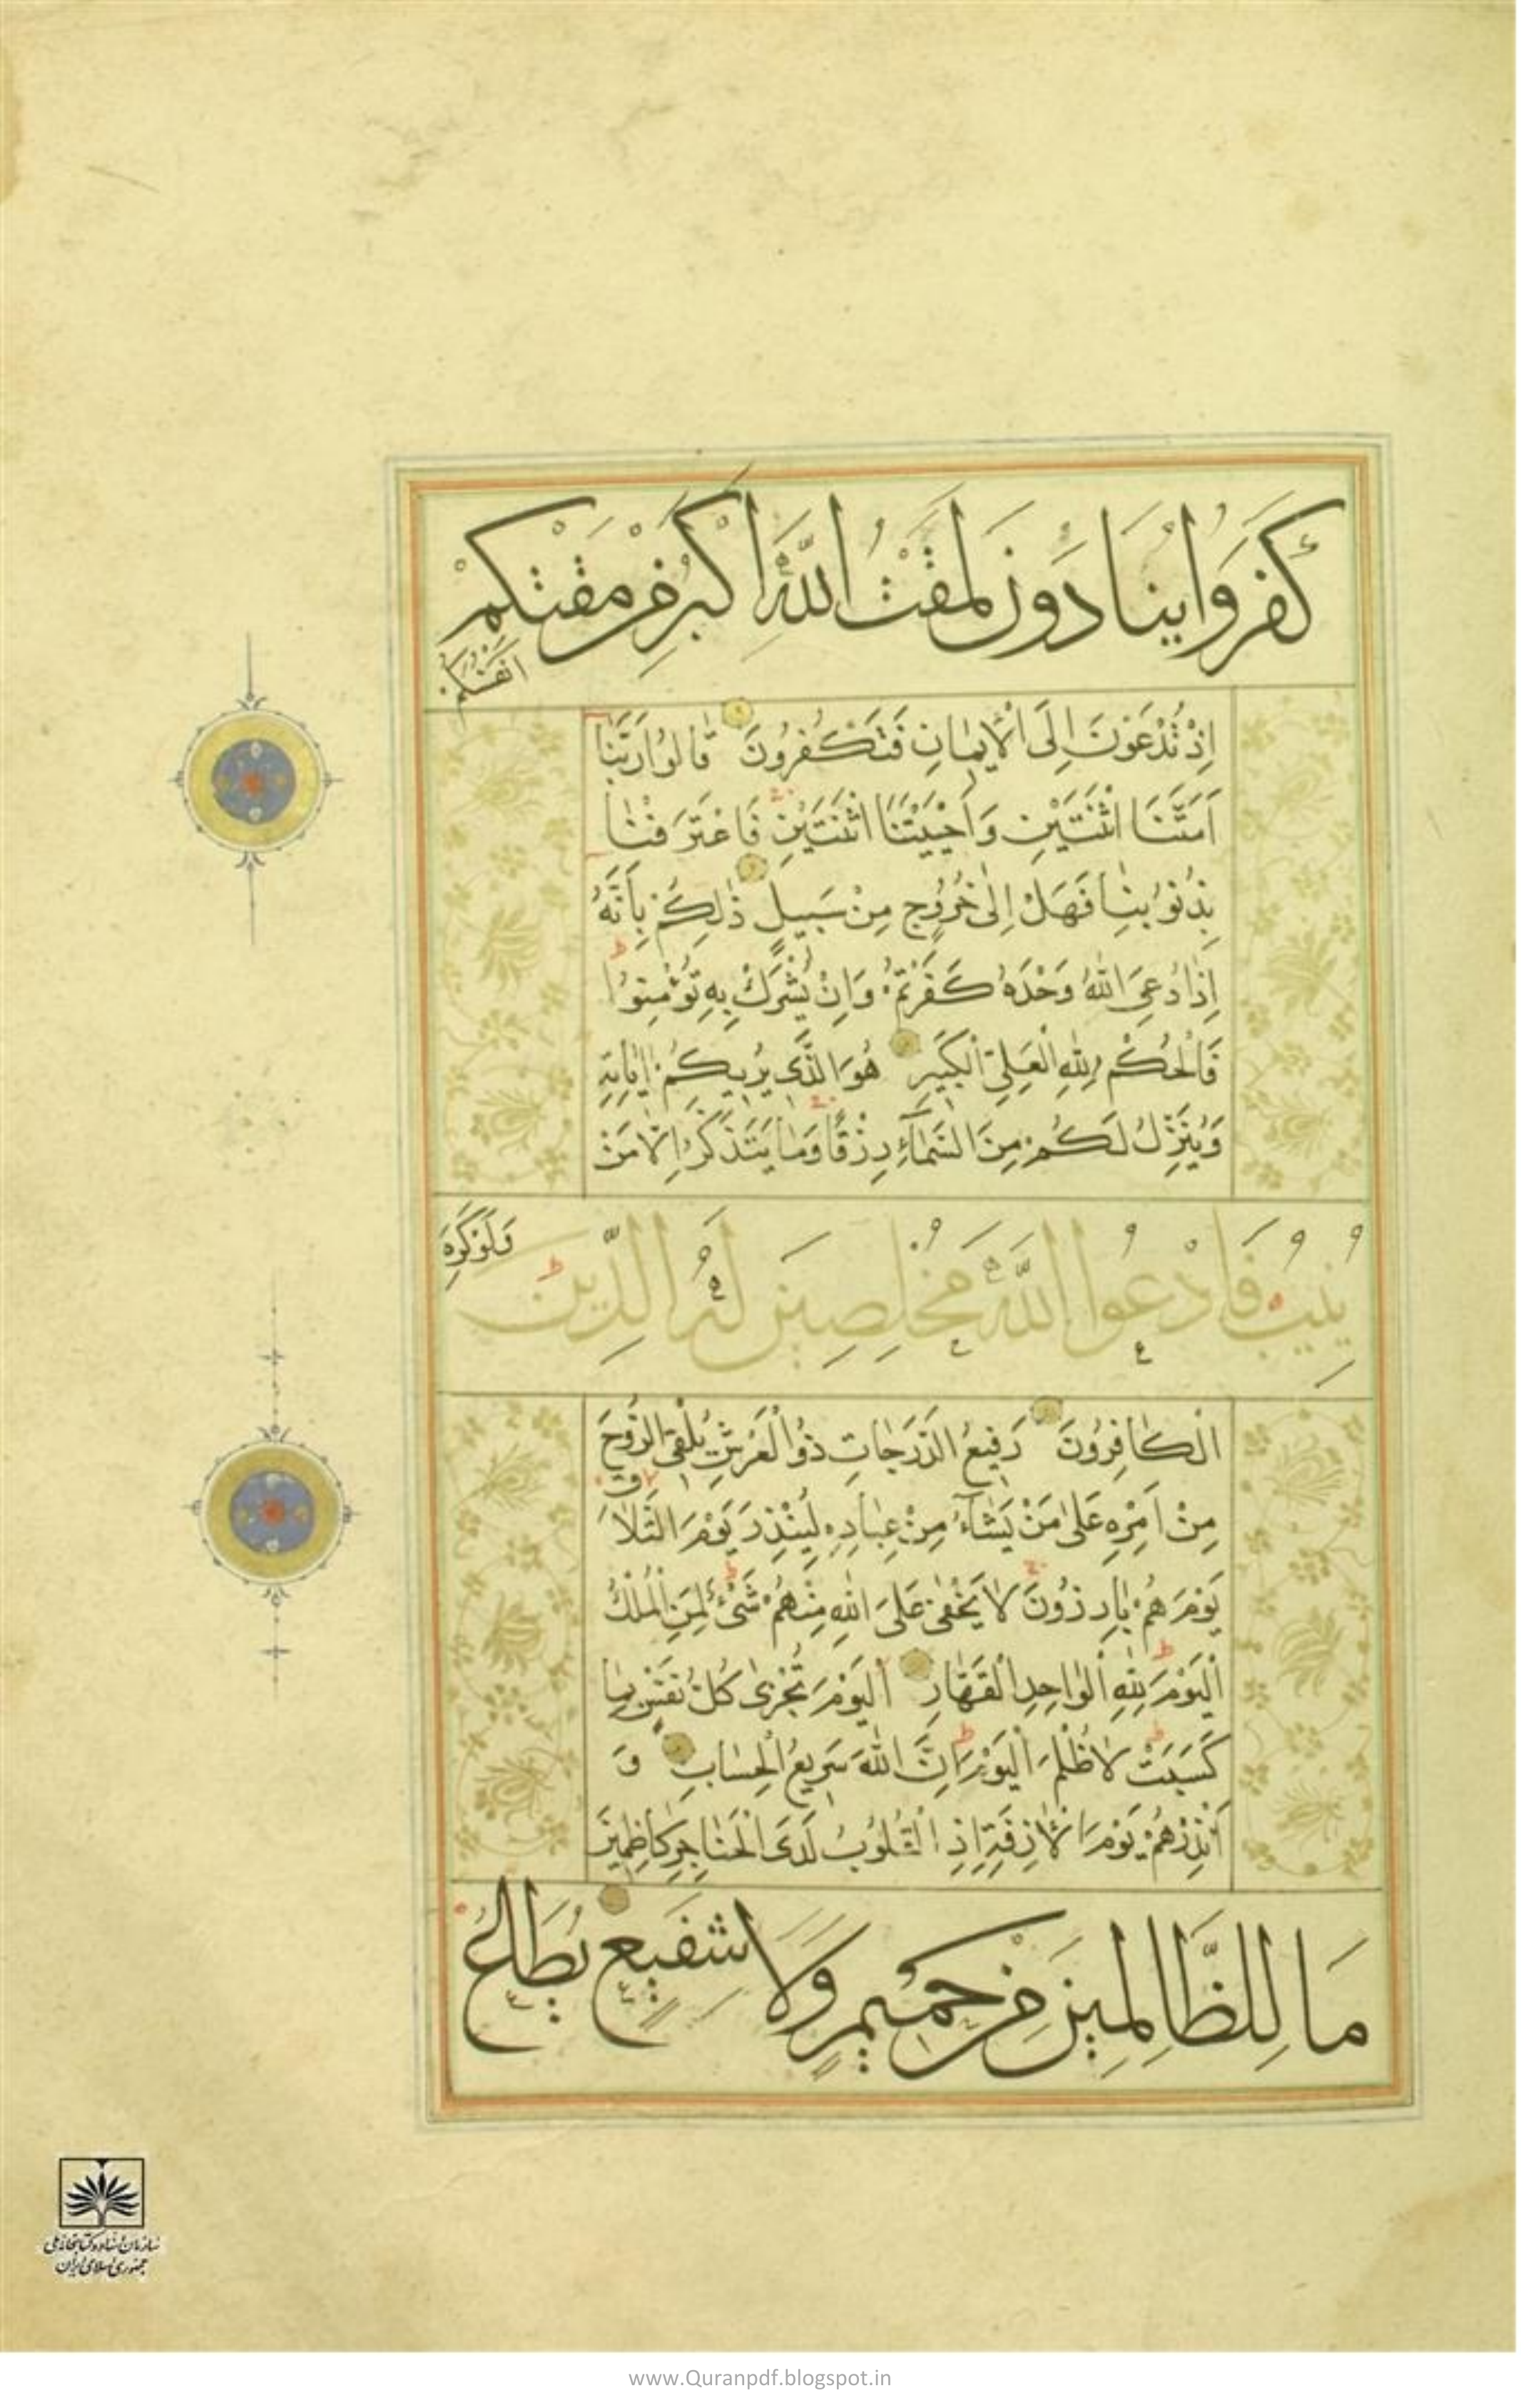 كَفَرُوا يُنَادَوْنَ لَمَقْتُ اللَّهِ أَكْبَرُ مِنْ مَقْتِكُمْ
اَنفُسَكُمْ
اِذْ تُدْعَوْنَ اِلَى الْاِيمَانِ فَتَكْفُرُونَ قَالُوا رَبَّنَا
اَمَتَّنَا اثْنَتَيْنِ وَاَحْيَيْتَنَا اثْنَتَيْنِ فَاعْتَرَفْنَا
بِذُنُوبِنَا فَهَلْ اِلٰى خُرُوجٍ مِنْ سَبِيلٍ ذٰلِكُمْ بِاَنَّهُ
اِذَا دُعِيَ اللّٰهُ وَحْدَهُ كَفَرْتُمْ وَاِنْ يُشْرَكْ بِهِ تُؤْمِنُوا
فَالْحُكْمُ لِلّٰهِ الْعَلِيِّ الْكَبِيرِ هُوَ الَّذِي يُرِيكُمْ اٰيَاتِهِ
وَيُنَزِّلُ لَكُمْ مِنَ السَّمَآءِ رِزْقًا وَمَا يَتَذَكَّرُ اِلَّا مَنْ
يُنِيبُ فَادْعُوا اللَّهَ مُخْلِصِينَ لَهُ الدِّينَ
وَلَوْ كَرِهَ
الْكَافِرُونَ رَفِيعُ الدَّرَجَاتِ ذُو الْعَرْشِ يُلْقِي الرُّوحَ
مِنْ اَمْرِهِ عَلٰى مَنْ يَشَآءُ مِنْ عِبَادِهِ لِيُنْذِرَ يَوْمَ التَّلَاقِ
يَوْمَ هُمْ بَارِزُونَ لَا يَخْفٰى عَلَى اللّٰهِ مِنْهُمْ شَيْءٌ لِمَنِ الْمُلْكُ
اَلْيَوْمَ لِلّٰهِ الْوَاحِدِ الْقَهَّارِ اَلْيَوْمَ تُجْزٰى كُلُّ نَفْسٍ بِمَا
كَسَبَتْ لَا ظُلْمَ الْيَوْمَ اِنَّ اللّٰهَ سَرِيعُ الْحِسَابِ وَ
اَنْذِرْهُمْ يَوْمَ الْاٰزِفَةِ اِذِ الْقُلُوبُ لَدَى الْحَنَاجِرِ كَاظِمِينَ
مَا لِلظَّالِمِينَ مِنْ حَمِيمٍ وَلَا شَفِيعٍ يُطَاعُ
سازمان اسناد و کتابخانه ملی
جمهوری اسلامی ایران
www.Quranpdf.blogspot.in